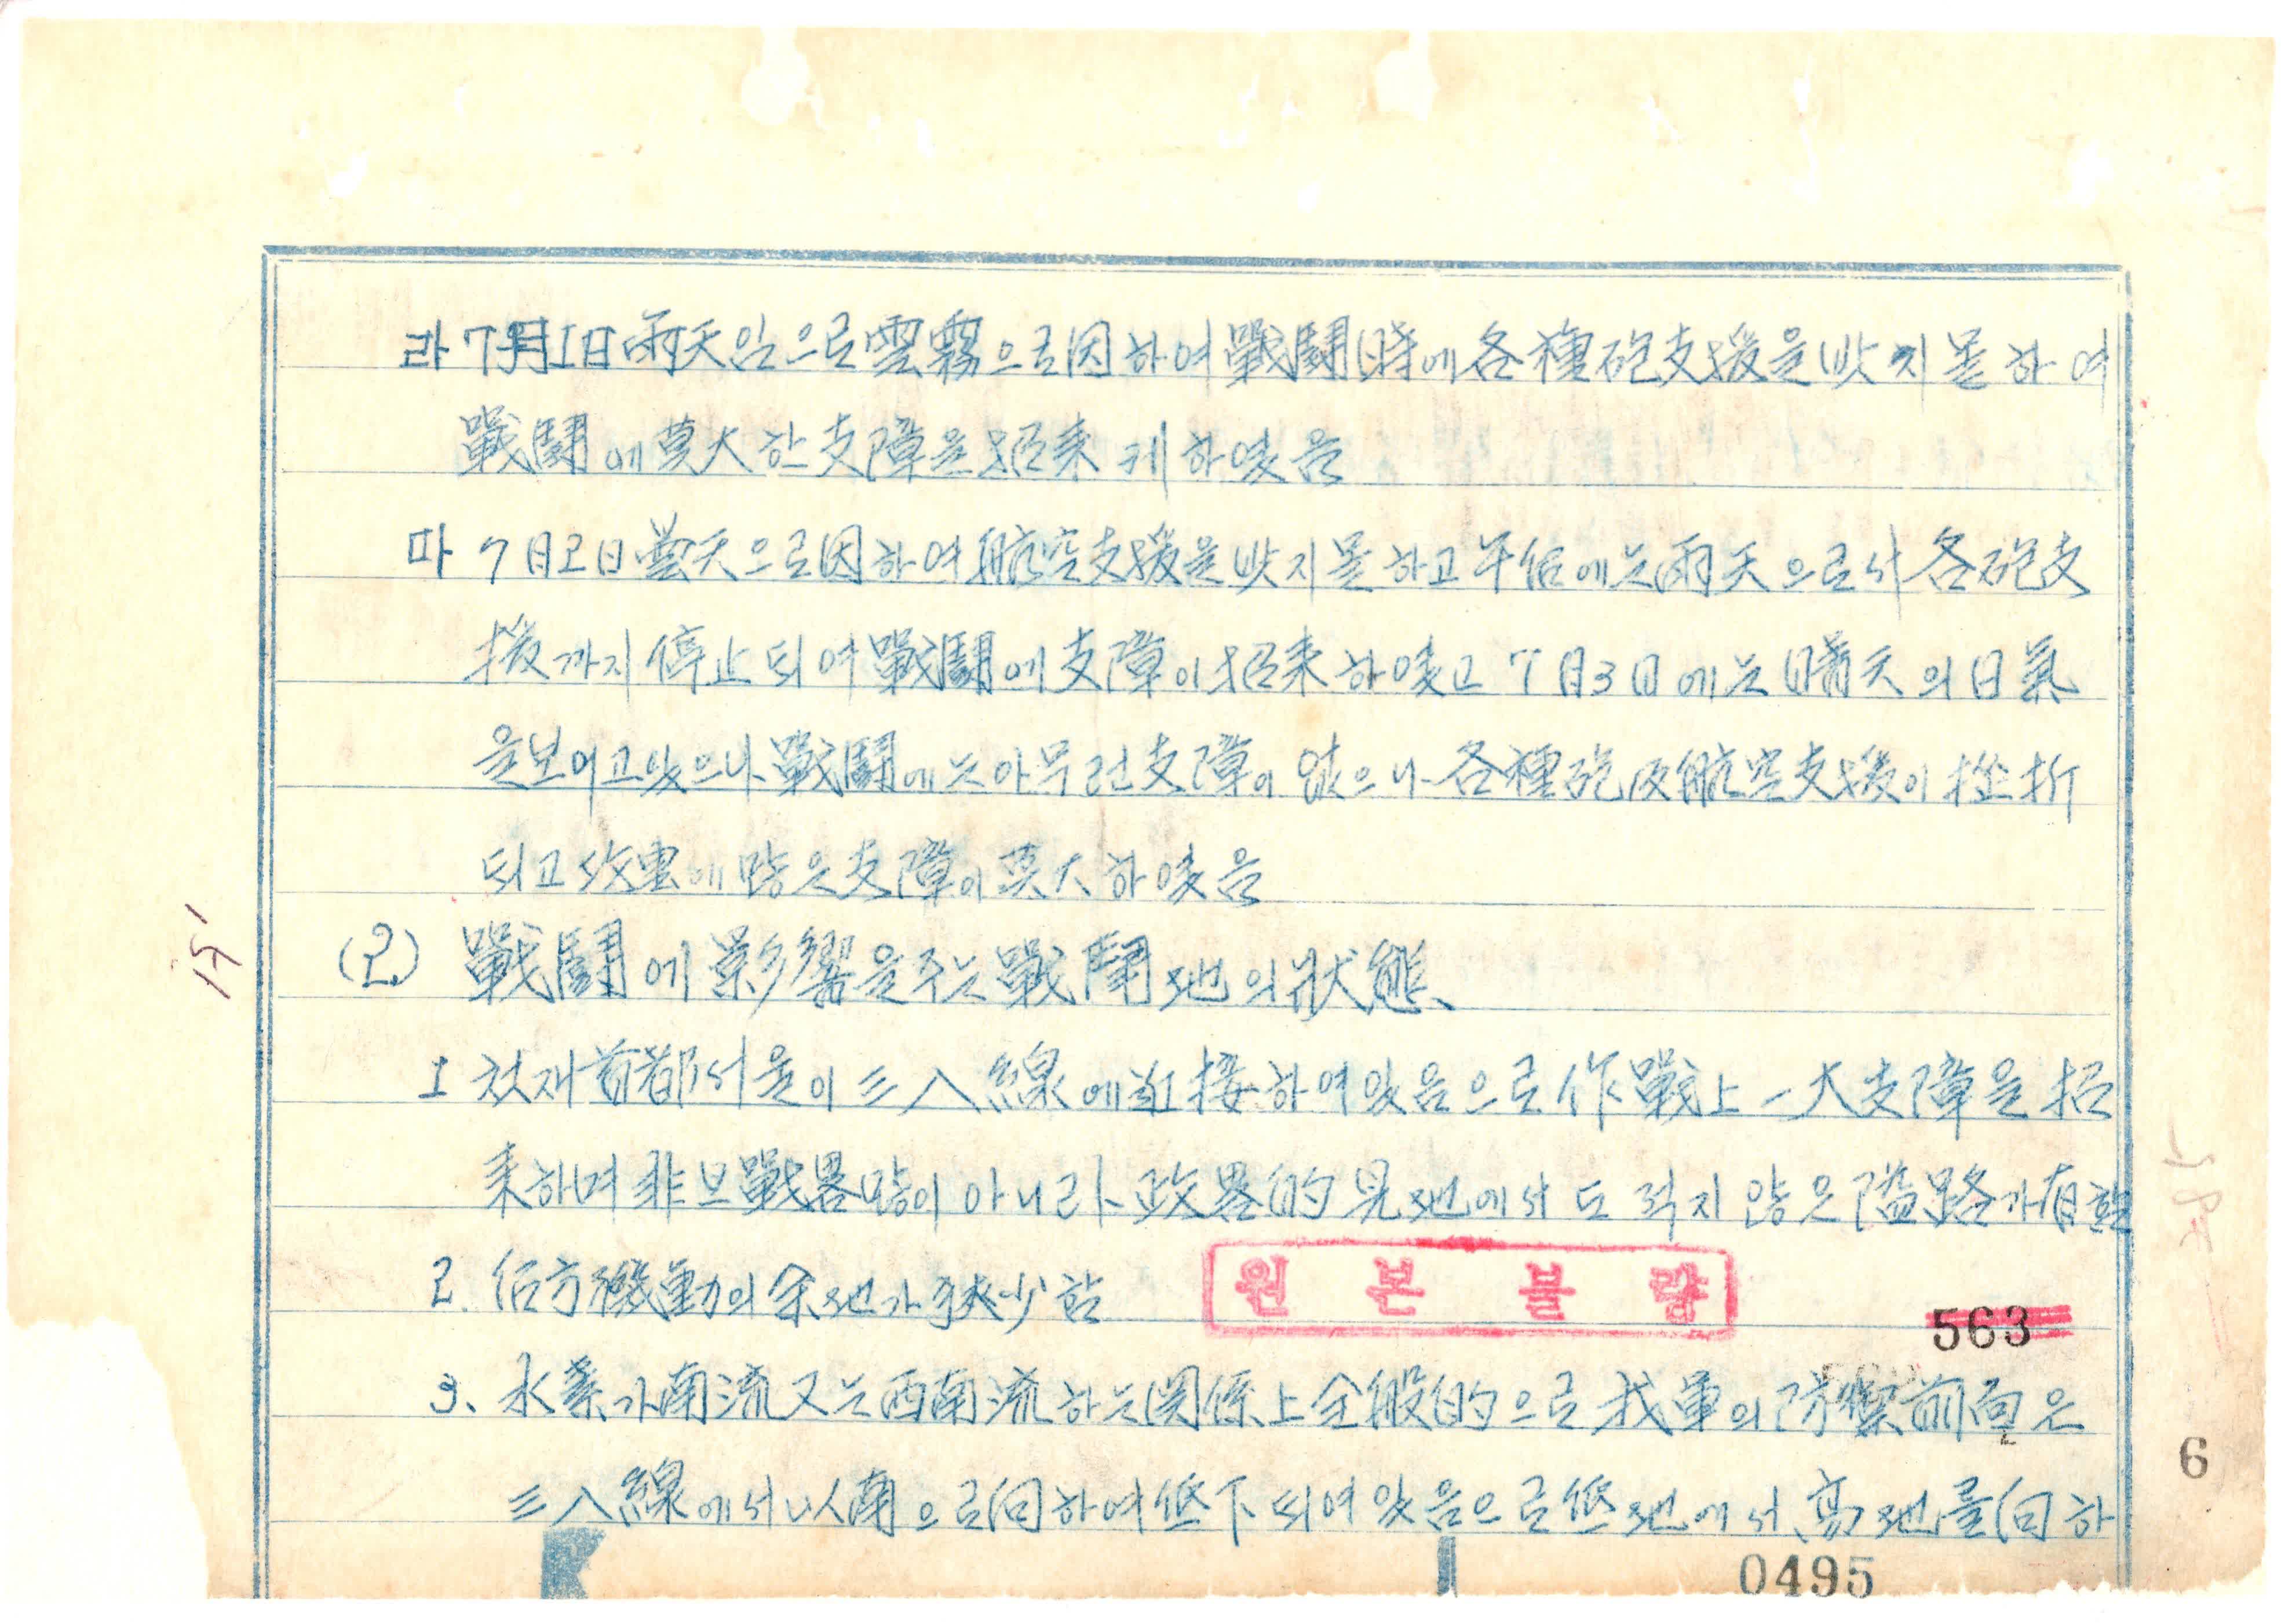 라 7月1日 雨天임으로 雲霧으로 因하여 戰鬪時에 各種砲支援을 밧지 몯하여
戰鬪에 莫大한 支障을 招来케 하였음
마 7月2日 曇天으로 因하여 航空支援을 밧지 몯하고 午后에는 雨天으로서 各砲支
援까지 停止되여 戰鬪에 支障이 招来하였고 7月3日에는 晴天의 日氣
을 보여고 있으나 戰鬪에는 아무런 支障이 없으나 各種砲及航空支援이 挫折
되고 攻撃에 많은 支障이 莫大하였음
(2) 戰鬪에 影響을 주는 戰鬪地의 狀態、
1 첫재 首都서울이 三八線에 近接하여 있음으로 作戰上 一大支障을 招
来하며 非但 戰畧많이 아니라 政畧的 見地에서도 적지 않은 隘路가 有함
2. 后方機動의 余地가 缺少함
원본불량
563
3、 水系가 南流 又는 西南流하는 関係上 全般的으로 我軍의 防禦前面은
三八線에서 以南으로 向하여 低下되여 있음으로 低地에서 高地를 向하
6
0495